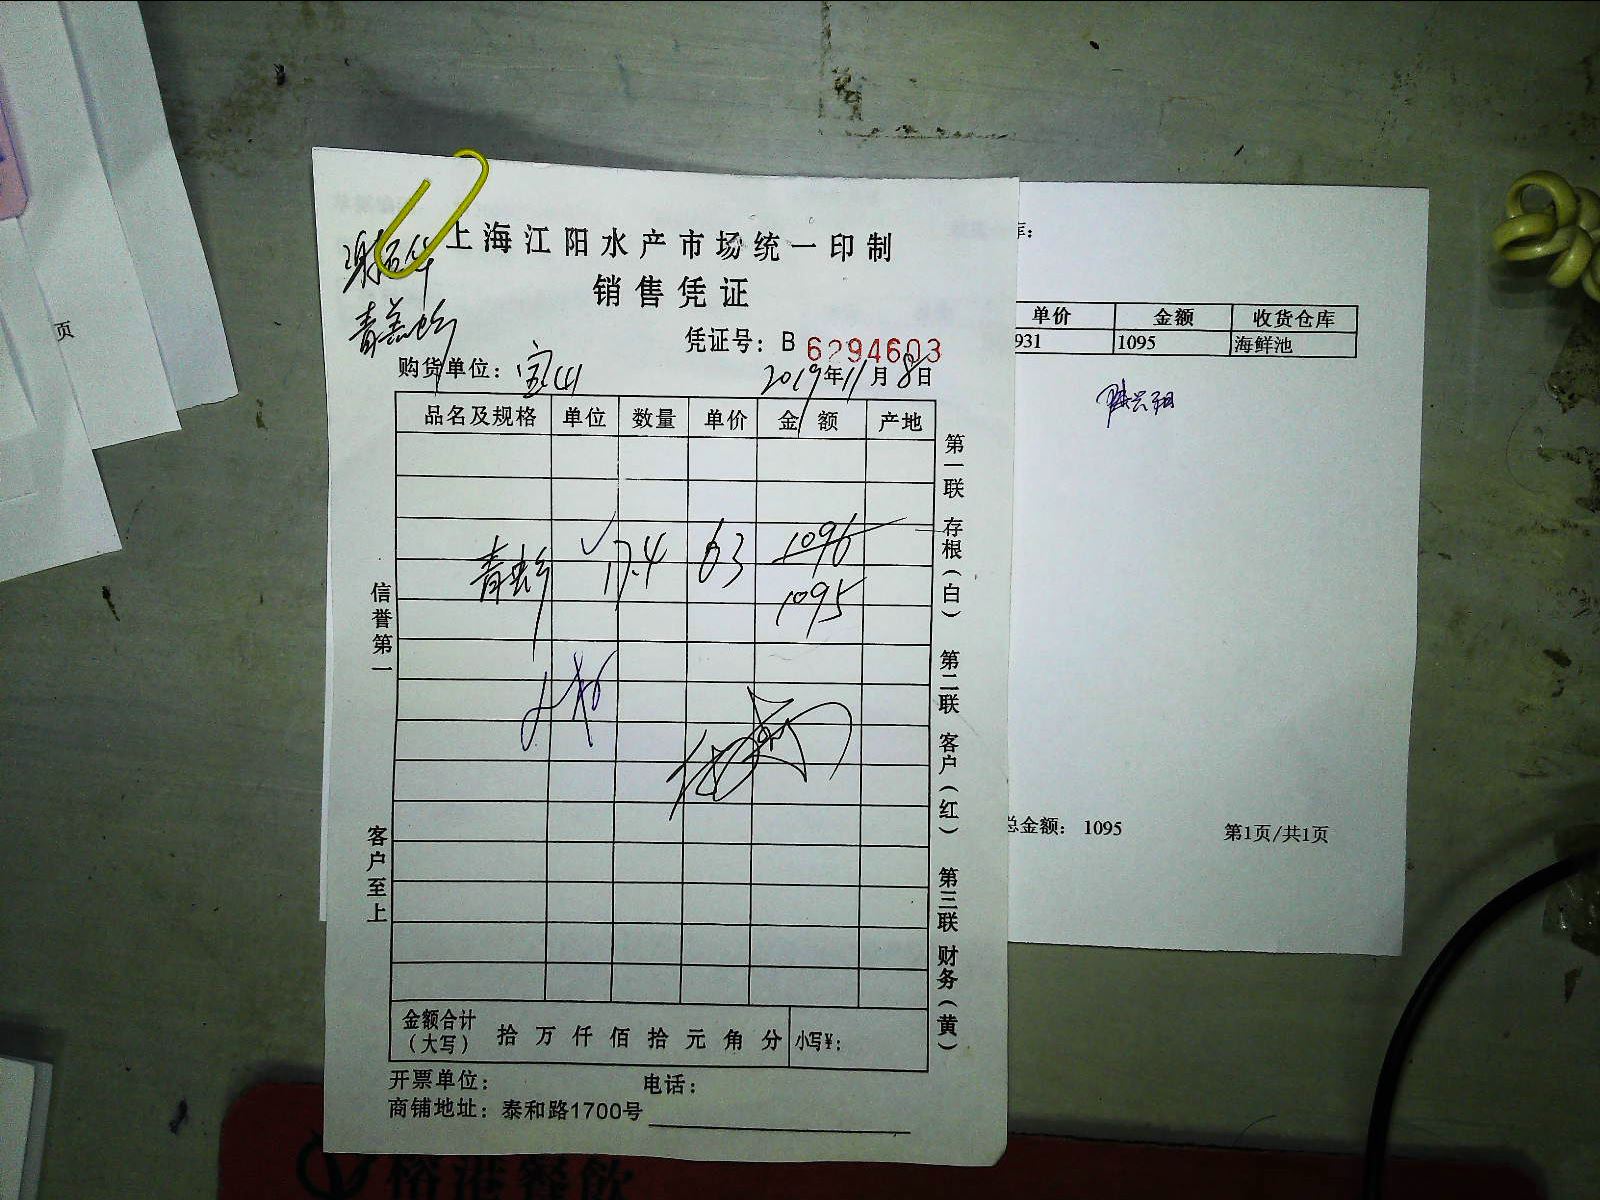 上海江阳水产市场统一印制
销售凭证
凭证号：B 6294603
购货单位：宝山 2019年11月8日
品名及规格 单位 数量 单价 金额 产地
17.4 63 1096
1095
信誉第一
客户至上
第一联 存根（白） 第二联 客户（红） 第三联 财务（黄）
金额合计（大写） 拾 万 仟 佰 拾 元 角 分 小写¥：
开票单位： 电话：
商铺地址：泰和路1700号
库：
单价 金额 收货仓库
931 1095 海鲜池
总金额： 1095 第1页/共1页
页